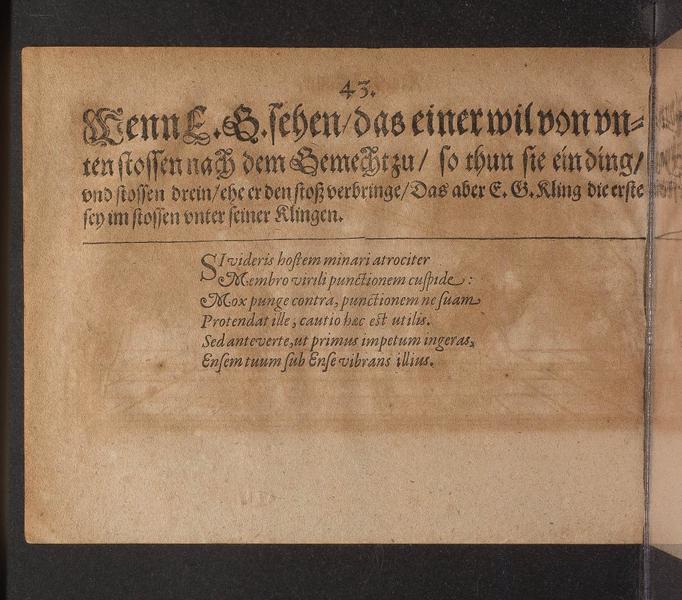 43.
Wenn E. G. sehen/das einer wil von vn-
ten stossen nach dem Gemecht zu/ so thun sie ein ding/
vnd stossen drein/ehe er den stoß verbringe/Das aber E. G. Kling die erste
sey im stossen vnter seiner Klingen.
SI videris hostem minari atrociter
Membro virili punctionem cuspide:
Mox punge contra, punctionem ne suam
Protendat ille, cautio hæc est utilis.
Sed anteverte, ut primus impetum ingeras,
Ensem tuum sub Ense vibrans illius.